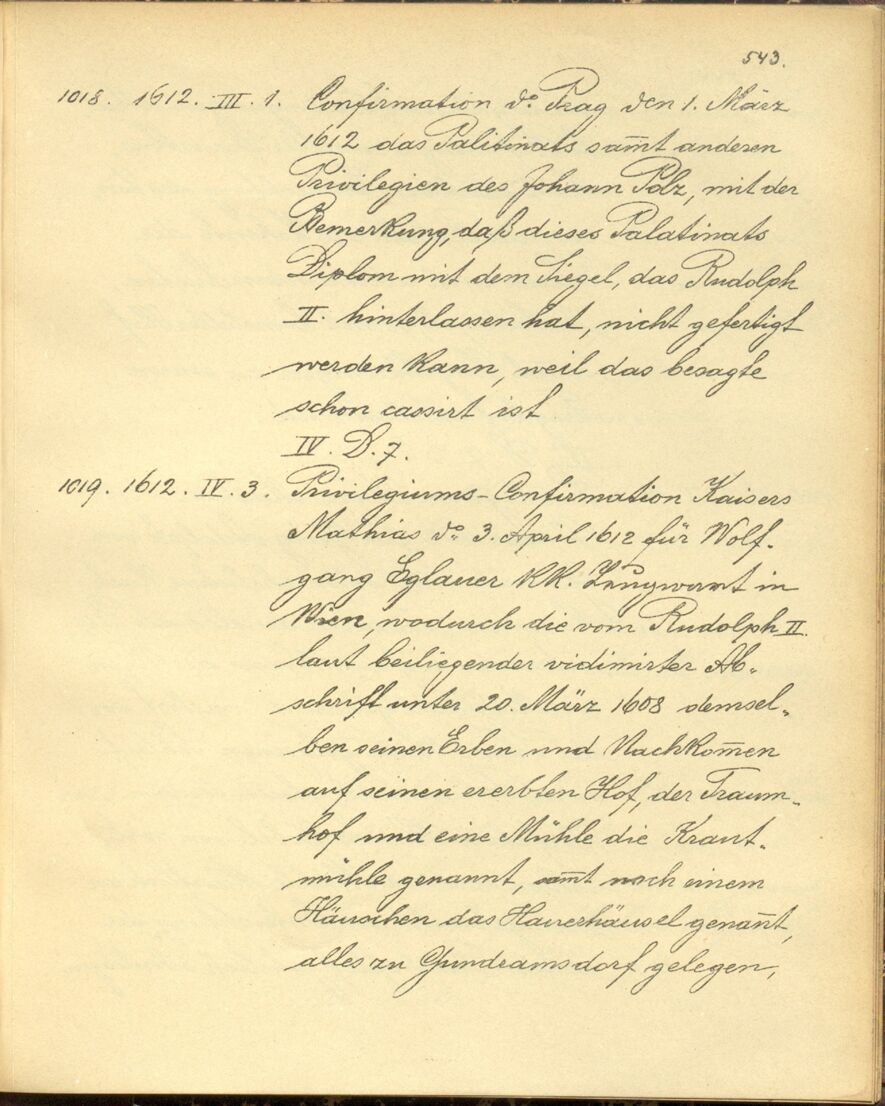 543.
1018. 1612. III. 1. Confirmation do. Prag den 1. März
1612 das Palitinats sam̅t anderen
Privilegien des Johann Polz, mit der
Bemerkung, daß dieses Palatinats
Diplom mit dem Siegel, das Rudolph
II. hinterlassen hat, nicht gefertigt
werden kann, weil das besagte
schon cassirt ist
IV. D. 7.
1019. 1612. IV. 3. Privilegiums-Confirmation Kaisers
Mathias do. 3. April 1612 für Wolf-
gang Eglauer KK. Zeugwart in
Wien, wodurch die vom Rudolph II.
laut beiliegender vidimirter Ab-
schrift unter 20. März 1608 demsel-
ben seinen Erben und Nachkom̅en
auf seinen ererbten Hof, der Traum-
hof und eine Mühle die Kraut-
mühle genannt, sam̅t noch einem
Häuschen das Hauerhäusel genan̅t,
alles zu Gundramsdorf gelegen,